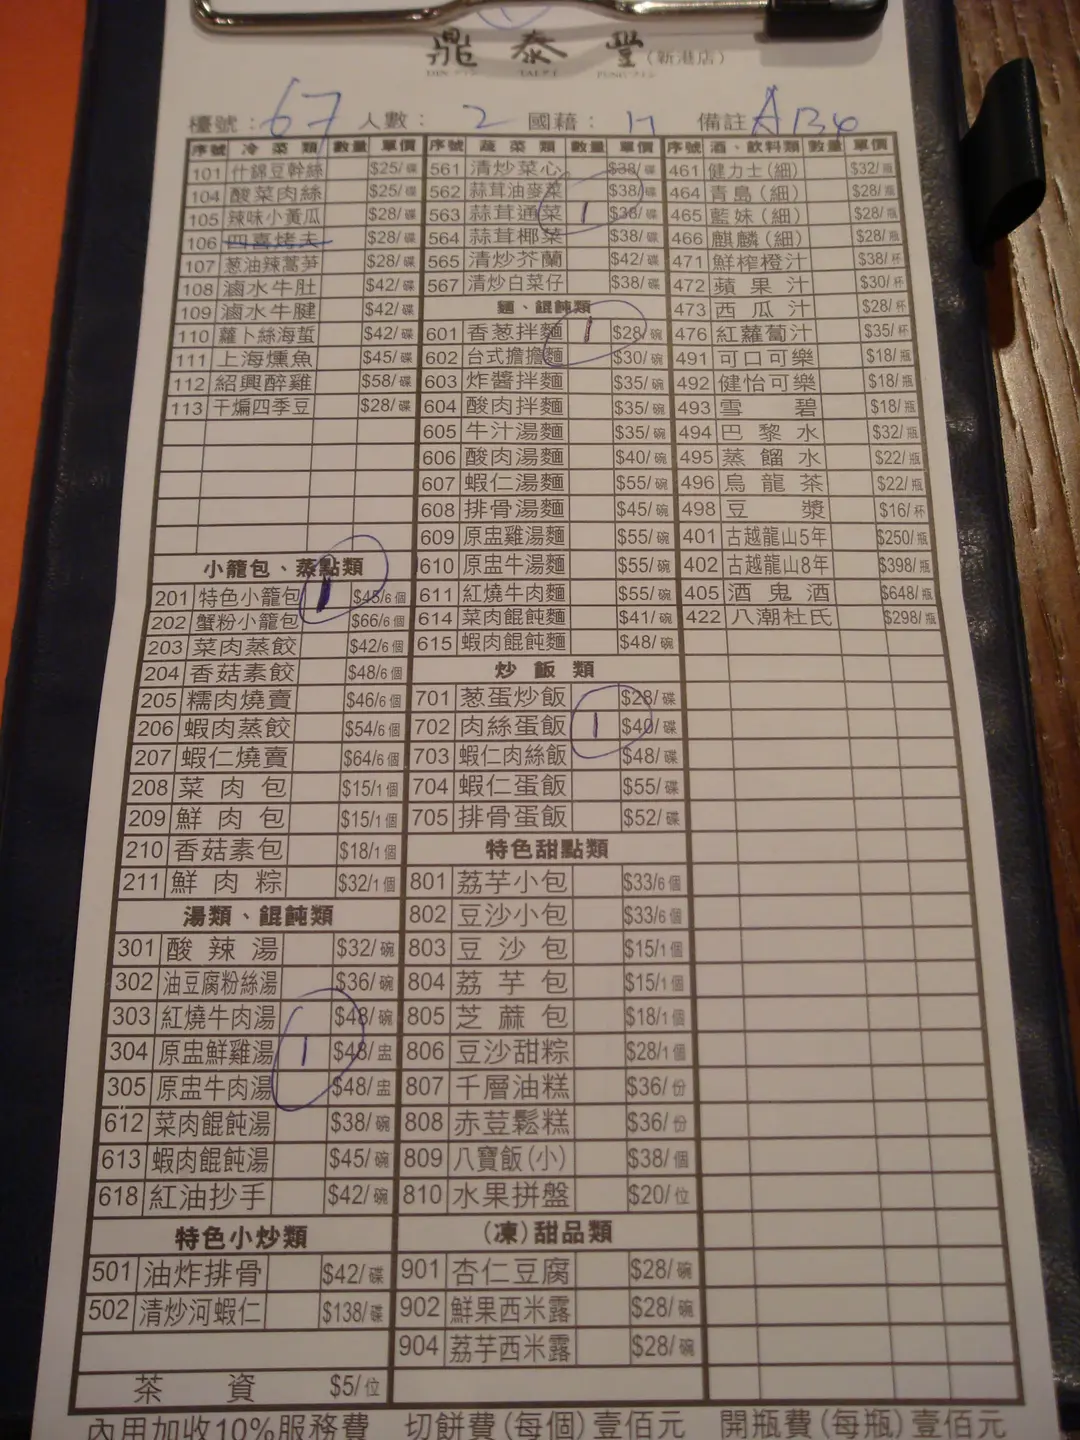 鼎泰豐(新港店)
檯號：67 人數：2 國藉：17 備註
序號 冷菜類 數量 單價
101 什錦豆幹絲 $25/碟
104 酸菜肉絲 $25/碟
105 辣味小黃瓜 $28/碟
106 四喜烤夫 $28/碟
107 葱油辣萵笋 $28/碟
108 滷水牛肚 $42/碟
109 滷水牛腱 $42/碟
110 蘿卜絲海蜇 $42/碟
111 上海燻魚 $45/碟
112 紹興醉雞 $58/碟
113 干煸四季豆 $28/碟
小籠包、蒸點類
201 特色小籠包 1 $48/6個
202 蟹粉小籠包 $66/6個
203 菜肉蒸餃 $42/6個
204 香菇素餃 $48/6個
205 糯肉燒賣 $46/6個
206 蝦肉蒸餃 $54/6個
207 蝦仁燒賣 $64/6個
208 菜肉包 $15/1個
209 鮮肉包 $15/1個
210 香菇素包 $18/1個
211 鮮肉粽 $32/1個
湯類、餛飩類
301 酸辣湯 $32/碗
302 油豆腐粉絲湯 $36/碗
303 紅燒牛肉湯 $48/碗
304 原盅鮮雞湯 1 $48/盅
305 原盅牛肉湯 $48/盅
612 菜肉餛飩湯 $38/碗
613 蝦肉餛飩湯 $45/碗
618 紅油抄手 $42/碗
特色小炒類
501 油炸排骨 $42/碟
502 清炒河蝦仁 $138/碟
茶資 $5/位
序號 蔬菜類 數量 單價
561 清炒菜心 $38/碟
562 蒜茸油麥菜 $38/碟
563 蒜茸通菜 1 $38/碟
564 蒜茸椰菜 $38/碟
565 清炒芥蘭 $42/碟
567 清炒白菜仔 $38/碟
麵、餛飩類
601 香葱拌麵 1 $28/碗
602 台式擔擔麵 $30/碗
603 炸醬拌麵 $35/碗
604 酸肉拌麵 $35/碗
605 牛汁湯麵 $35/碗
606 酸肉湯麵 $40/碗
607 蝦仁湯麵 $55/碗
608 排骨湯麵 $45/碗
609 原盅雞湯麵 $55/碗
610 原盅牛湯麵 $55/碗
611 紅燒牛肉麵 $55/碗
614 菜肉餛飩麵 $41/碗
615 蝦肉餛飩麵 $48/碗
炒飯類
701 葱蛋炒飯 $28/碟
702 肉絲蛋飯 1 $40/碟
703 蝦仁肉絲飯 $48/碟
704 蝦仁蛋飯 $55/碟
705 排骨蛋飯 $52/碟
特色甜點類
801 荔芋小包 $33/6個
802 豆沙小包 $33/6個
803 豆沙包 $15/1個
804 荔芋包 $15/1個
805 芝蔴包 $18/1個
806 豆沙甜粽 $28/1個
807 千層油糕 $36/份
808 赤荳鬆糕 $36/份
809 八寶飯(小) $38/個
810 水果拼盤 $20/位
(凍)甜品類
901 杏仁豆腐 $28/碗
902 鮮果西米露 $28/碗
904 荔芋西米露 $28/碗
序號 酒、飲料類 數量 單價
461 健力士(細) $32/瓶
464 青島(細) $28/瓶
465 藍妹(細) $28/瓶
466 麒麟(細) $28/瓶
471 鮮榨橙汁 $38/杯
472 蘋果汁 $30/杯
473 西瓜汁 $28/杯
476 紅蘿蔔汁 $35/杯
491 可口可樂 $18/瓶
492 健怡可樂 $18/瓶
493 雪碧 $18/瓶
494 巴黎水 $32/瓶
495 蒸餾水 $22/瓶
496 烏龍茶 $22/瓶
498 豆漿 $16/杯
401 古越龍山5年 $250/瓶
402 古越龍山8年 $398/瓶
405 酒鬼酒 $648/瓶
422 八潮杜氏 $298/瓶
內用加收10%服務費 切餅費(每個)壹佰元 開瓶費(每瓶)壹佰元